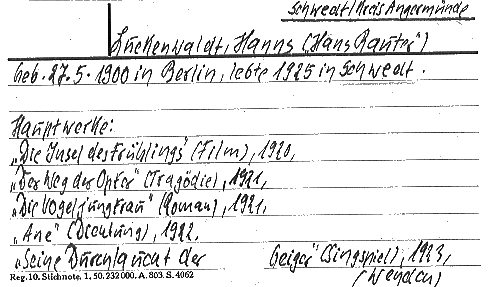 Schwedt/Kreis Angermünde
Luckenwaldt, Hanns (Hans Rauter")
Geb. 27.5.1900 in Berlin, lebte 1925 in Schwedt.
Hauptwerke:
„Die Insel des Frühlings" (Film), 1920,
„Der Weg der Opfer" (Tragödie), 1921,
„Die Vogeljungfrau" (Roman), 1921,
„Ave" (Dichtung), 1922,
„Seine Durchlaucht der Geiger" (Singspiel), 1923,
Reg. 10. Stichnote. 1, 50. 232 000. A. 803. S. 4062